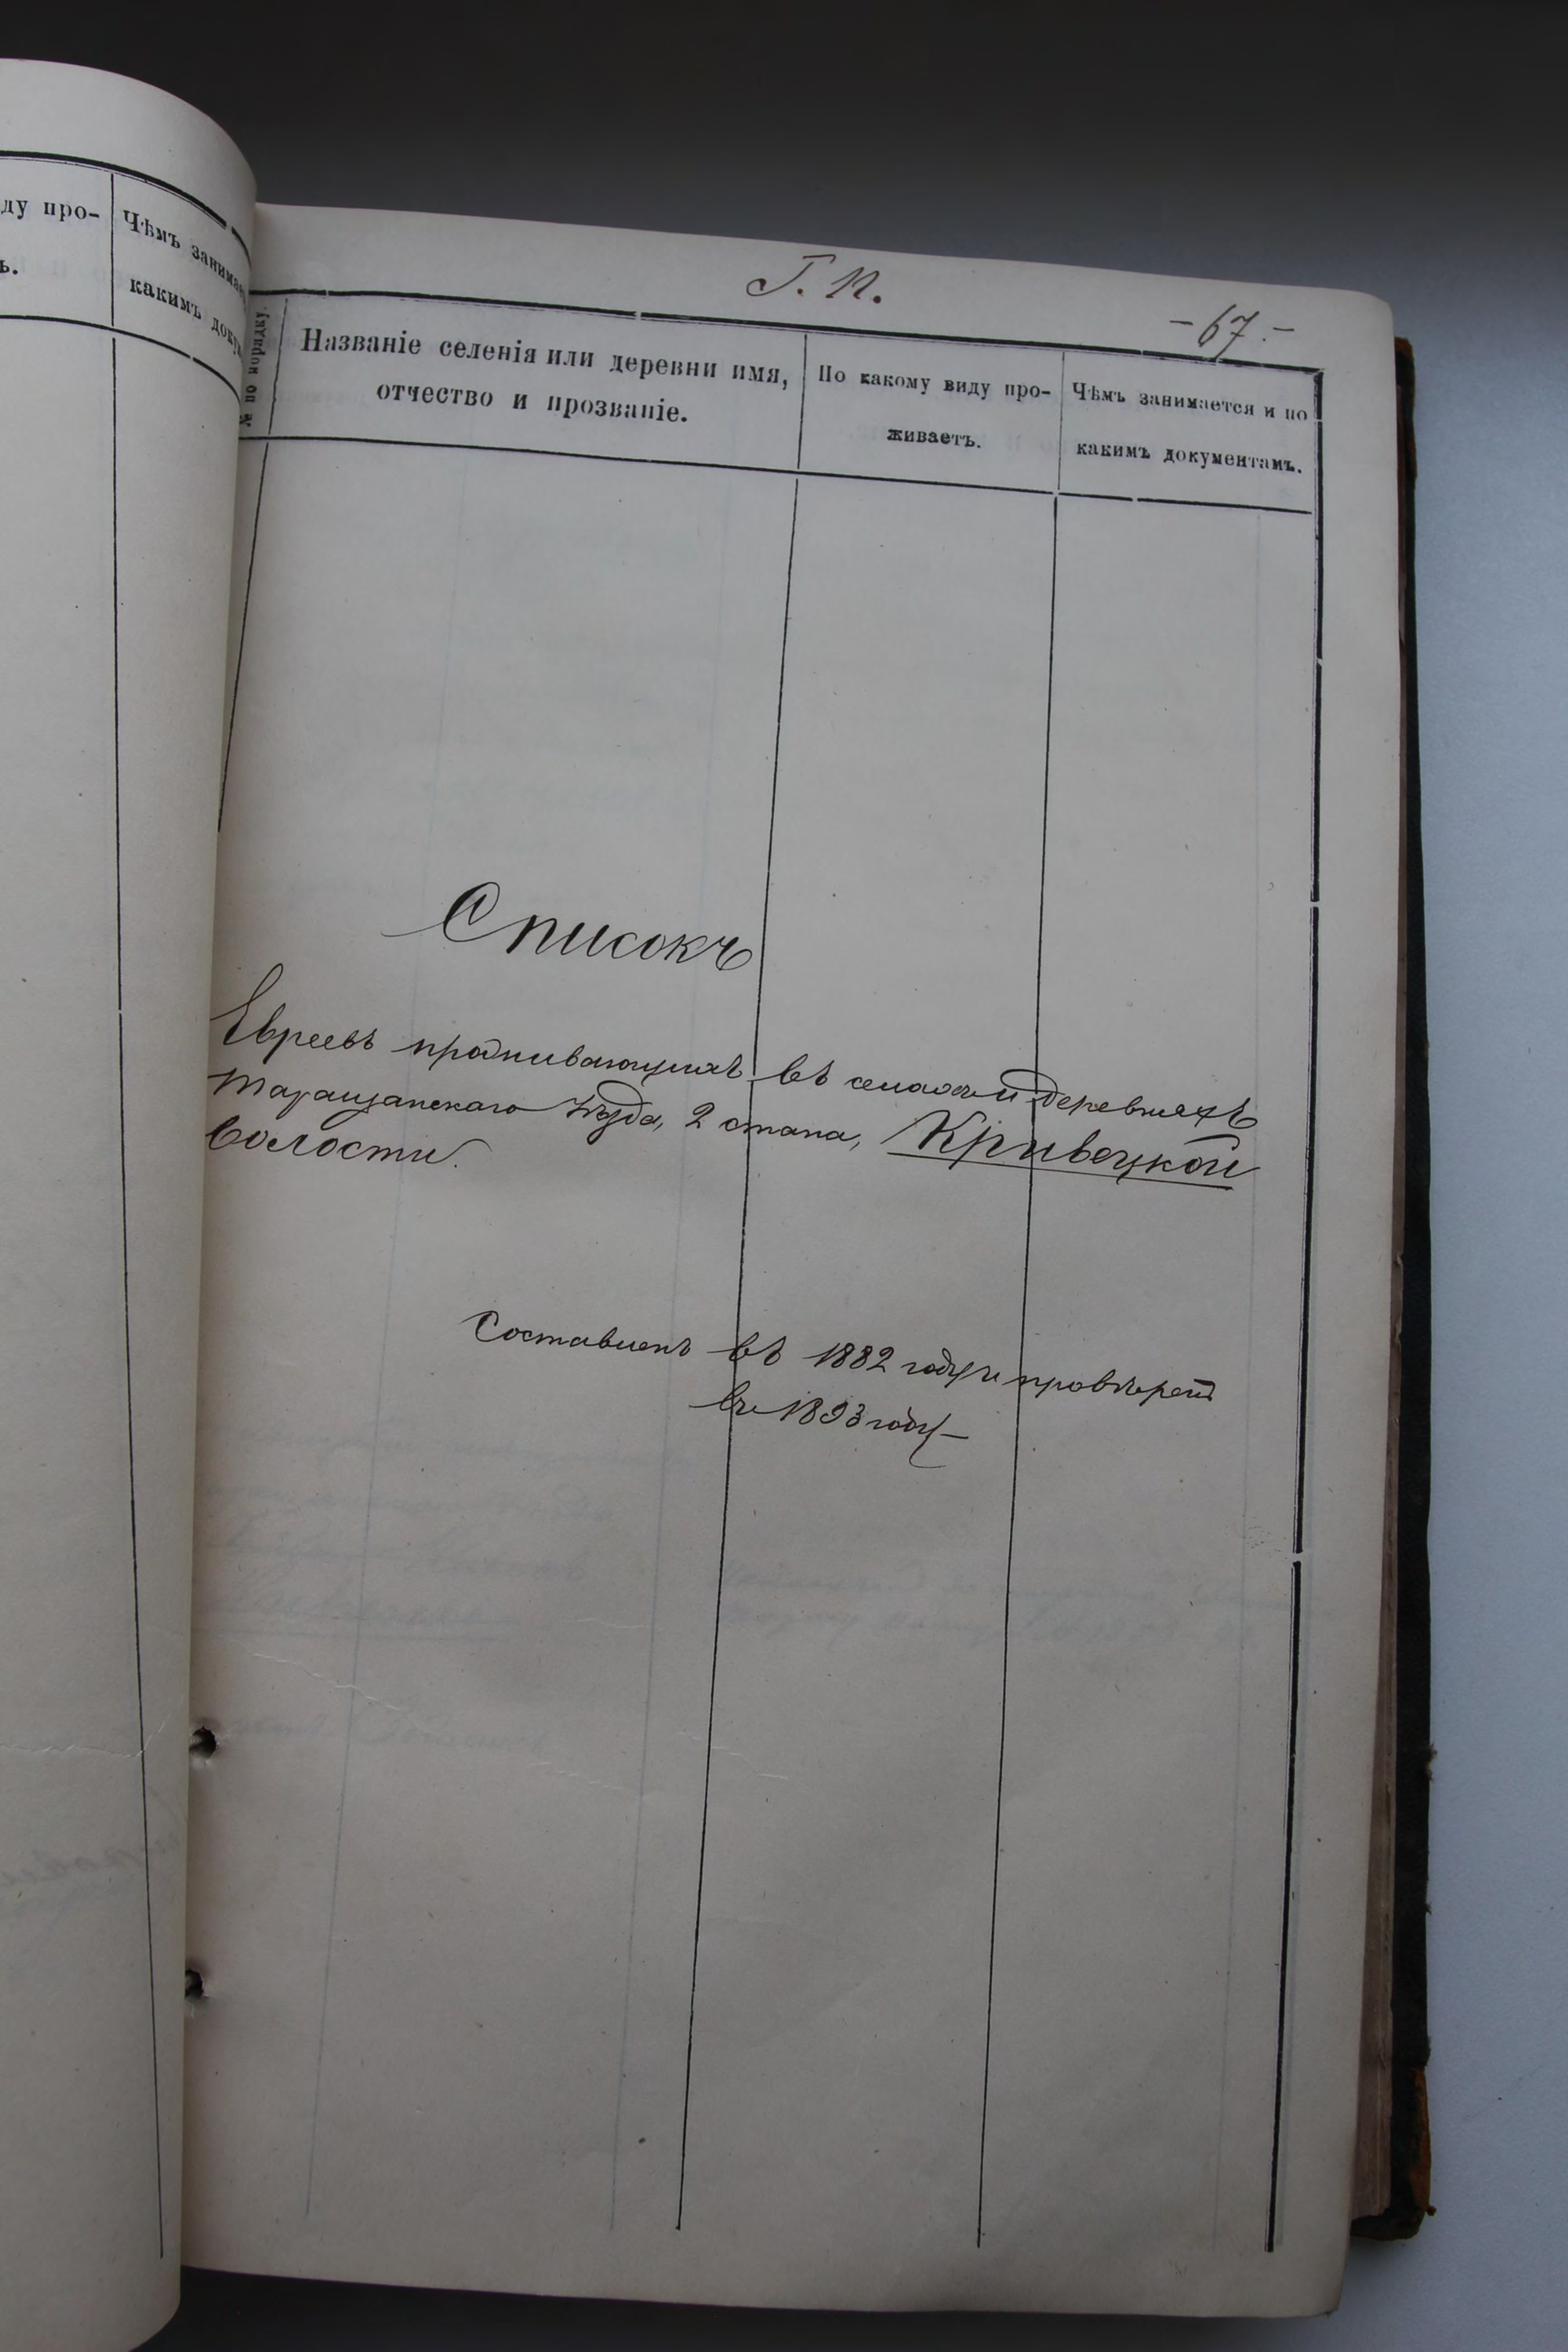 ду про-
ь.
Чѣмъ занимае
какимъ доку
Г. П.
- 67. -
№ по порядку.
Названіе селенія или деревни имя,
отчество и прозваніе.
По какому виду про-
живаетъ.
Чѣмъ занимается и по
какимъ документамъ.
Списокъ
Евреевъ проживающихъ въ селахъ и деревняхъ
Таращанскаго уѣзда, 2 стана, Кривецкой
волости.
Составленъ въ 1882 году и провѣренъ
въ 1893 году